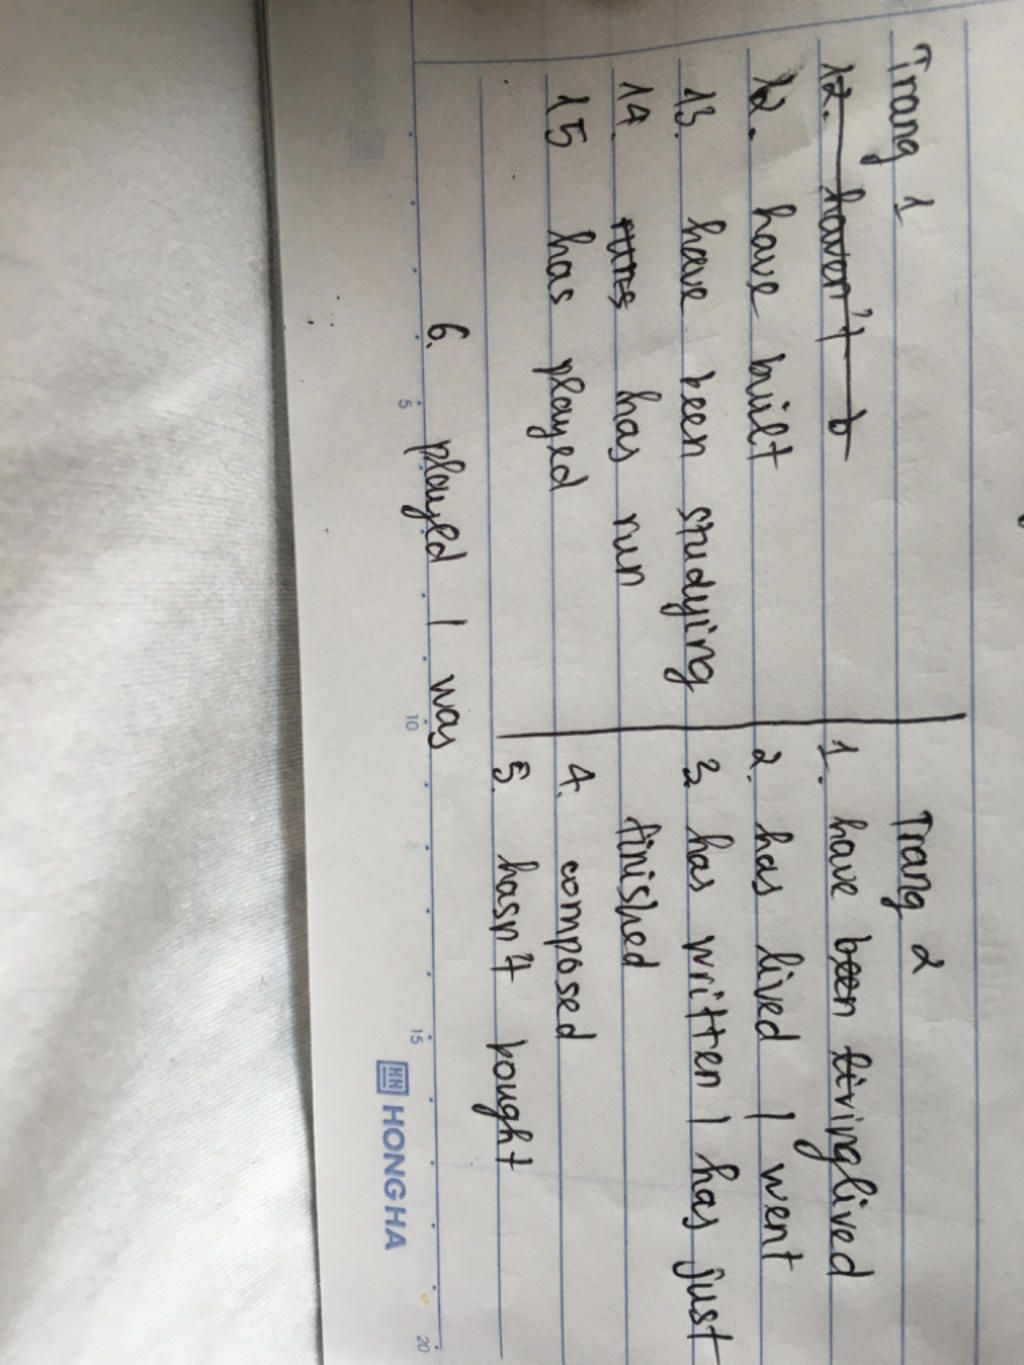 Trang 1
12. haven't b
12. have built
13. have been studying
14. runs has run
15 has played
Trang 2
1. have been living lived
2. has lived / went
3. has written / has just
finished
4. composed
5. hasn't bought
6. played / was
5 10 15 20
HH HONG HA